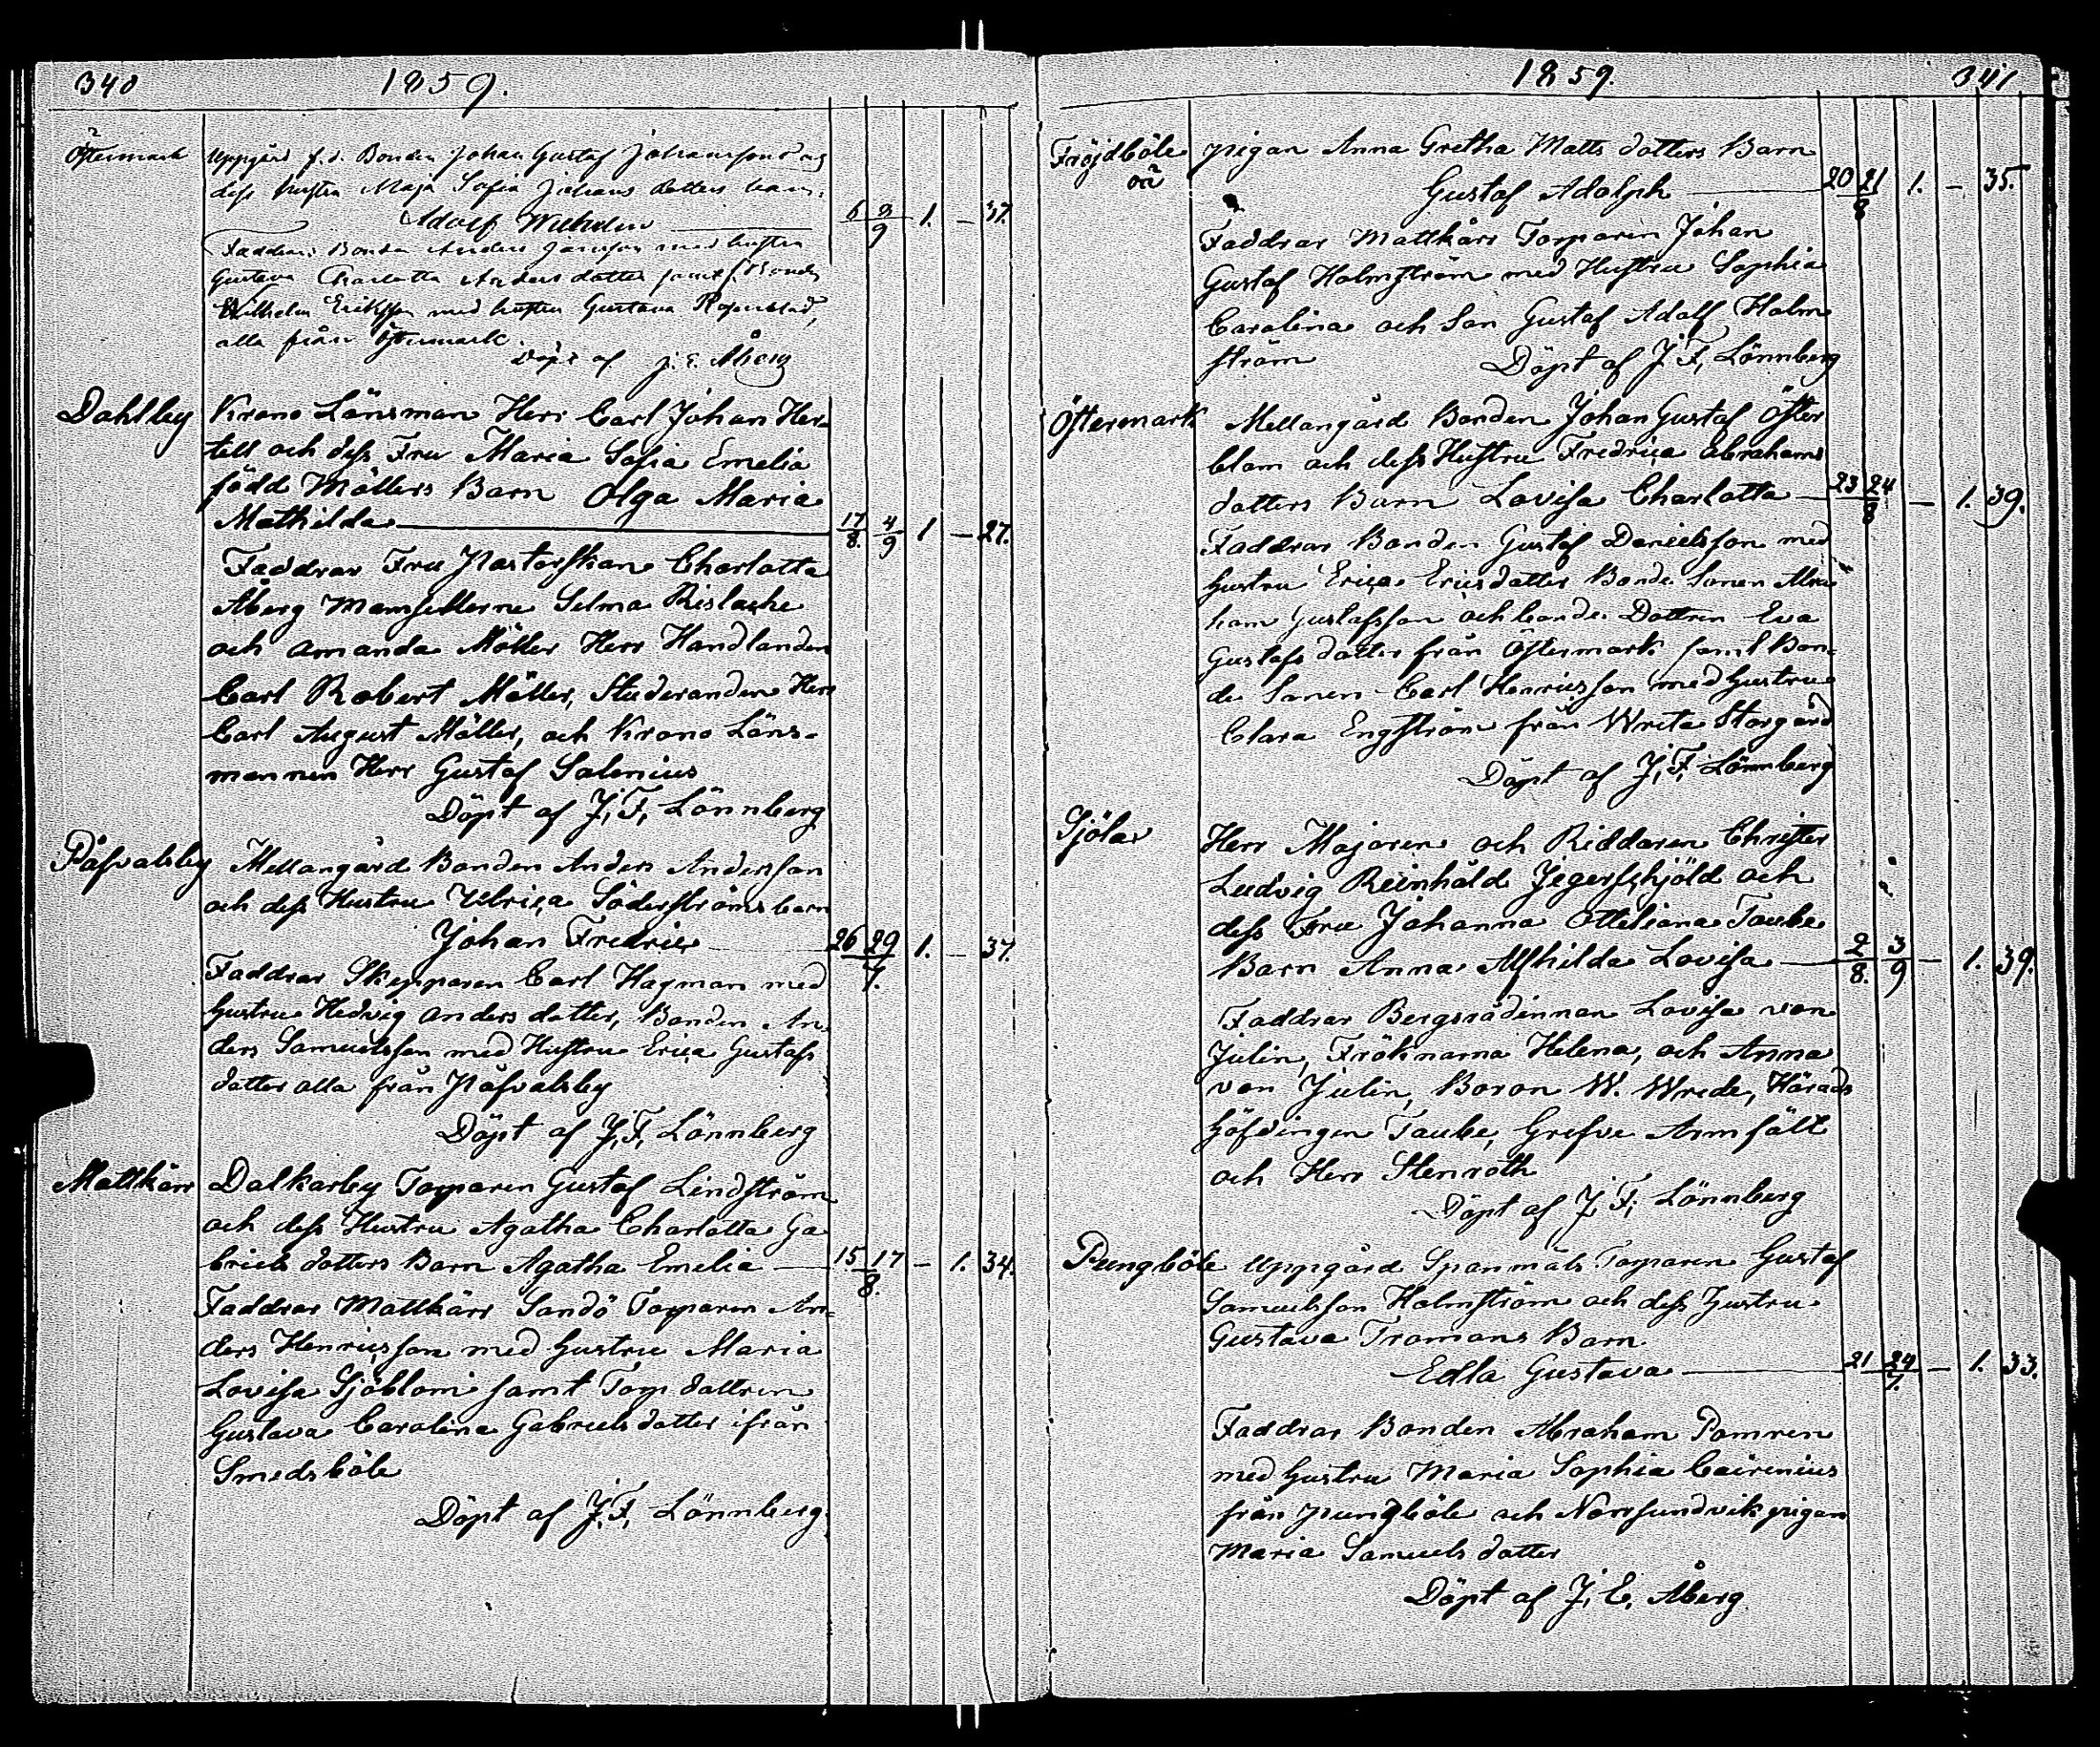 340 1859.
Östermark Uppgård f.d. Bonden Johan Gustaf Johanssons och
dess hustru Maja Sofia Johans dotters barn
Adolf Wilhelm 6 8/9 1. — 37.
Faddrar: Bonden Anders Jansson med hustru
Gustava Charlotta Anders dotter samt f. Bonden
Wilhelm Eriksson med hustru Gustava Rosenblad,
alla från Östermark.
Döpt af J. E. Åberg
Dahlby Krono Länsman Herr Carl Johan Her-
tell och dess Fru Maria Sofia Emelia
född Möllers Barn Olga Maria
Mathilda 17/8. 4/9 1 — 27.
Faddrar Fru Pastorskan Charlotta
Åberg Mamsellerne Selma Rislache
och Amanda Möller Herr Handlanden
Carl Robert Möller, Studeranden Herr
Carl August Möller, och Krono Läns-
mannen Herr Gustaf Salenius
Döpt af J. F. Lönnberg
Påfvalsby Mellangård Bonden Anders Andersson
och dess Hustru Ulrica Söderströms barn
Johan Fredric 26 29/7. 1. — 37.
Faddrar Skepparen Carl Hagman med
hustru Hedvig Anders dotter, Bonden An-
ders Samuelsson med Hustru Erica Gustafs
dotter alla från Påfvalsby
Döpt af J. F. Lönnberg
Mattkärr Dalkarby Torparen Gustaf Lindström
och dess Hustru Agatha Charlotta Ga
briels dotters Barn Agatha Emelia 15 17/8. — 1. 34.
Faddrar Mattkärr Sandö Torparen An-
ders Henricsson med hustru Maria
Lovisa Sjöblom samt Torp dottren
Gustava Carolina Gabriels dotter ifrån
Smedsböle
Döpt af J. F. Lönnberg
1859. 341
Fröjdböle pigan Anna Gretha Matts dotters Barn
oä Gustaf Adolph 20 21/8 1. — 35.
Faddrar Mattkärr Torparen Johan
Gustaf Holmström med Hustru Sophia
Carolina och Son Gustaf Adolf Holm
ström Döpt af J. F. Lönnberg
Östermark Mellangård Bonden Johan Gustaf Öster
blom och dess Hustru Fredrica Abrahams
dotters Barn Lovisa Charlotta 23 24/8 — 1. 39.
Faddrar Bonden Gustaf Danielsson med
hustru Erica Ericsdotter Bonde Sonen Abra
ham Gustafsson och bonde Dottren Eva
Gustafs dotter från Östermark samt Bon-
de Sonen Carl Henricsson med hustru
Clara Engström från Wreta Storgård
Döpt af J. F. Lönnberg
Sjölax Herr Majoren och Riddaren Christer
Ludvig Reinhold Jegerskjöld och
dess Fru Johanna Otteliana Taube
Barn Anna Alfhilda Lovisa 2/8. 3/9 — 1. 39.
Faddrar Bergsrådinnan Lovisa von
Julin, Fröknarna Helena, och Anna
von Julin, Baron W. Wrede, Härads
höfdingen Taube, Grefve Armfält
och Herr Stenroth
Döpt af J. F. Lönnberg
Pungböle Uppgård Spanmåls Torparen Gustaf
Samuelsson Holmström och dess hustru
Gustava Tromans Barn
Edla Gustava 21 24/7. — 1. 33.
Faddrar Bonden Abraham Pomren
med hustru Maria Sophia Cairenius
från Pungböle och Norrsundvik pigan
Maria Samuels dotter
Döpt af J. E. Åberg